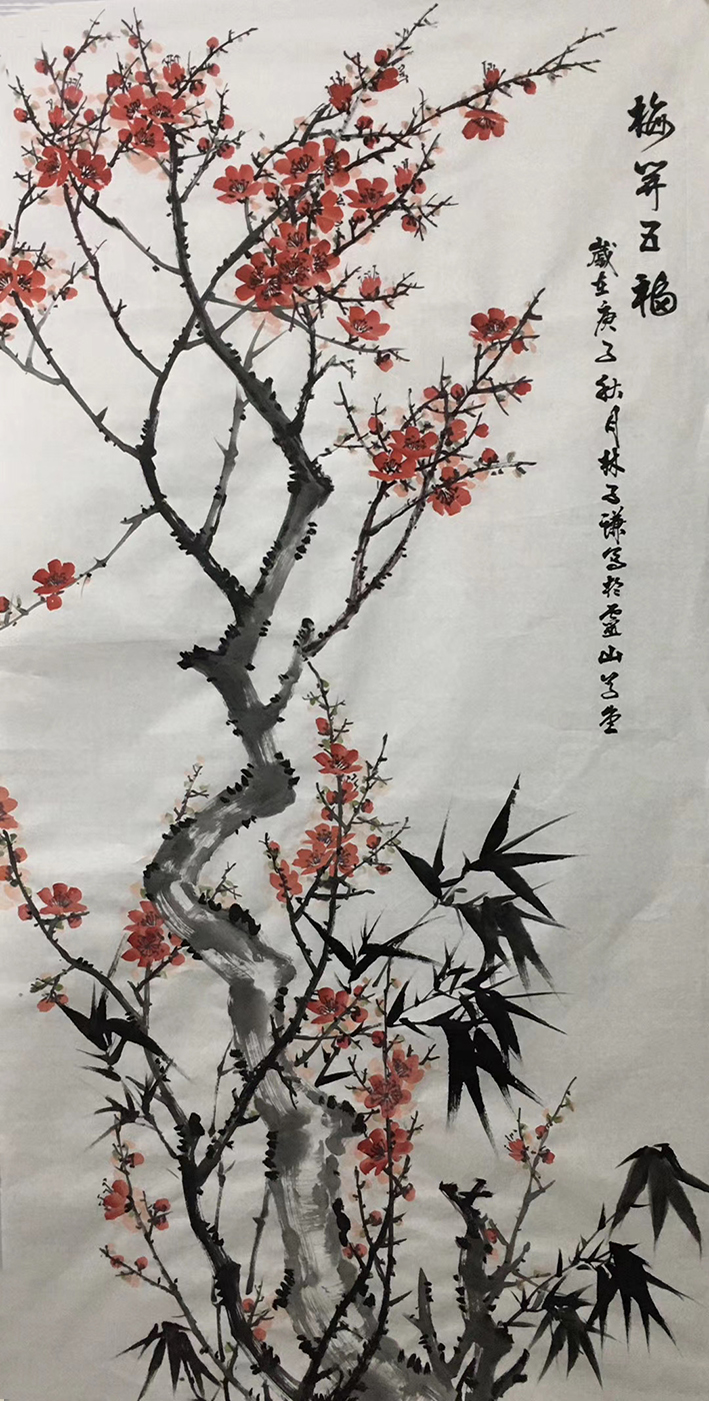 梅開五福
歲在庚子秋月林子謙寫於靈山草堂